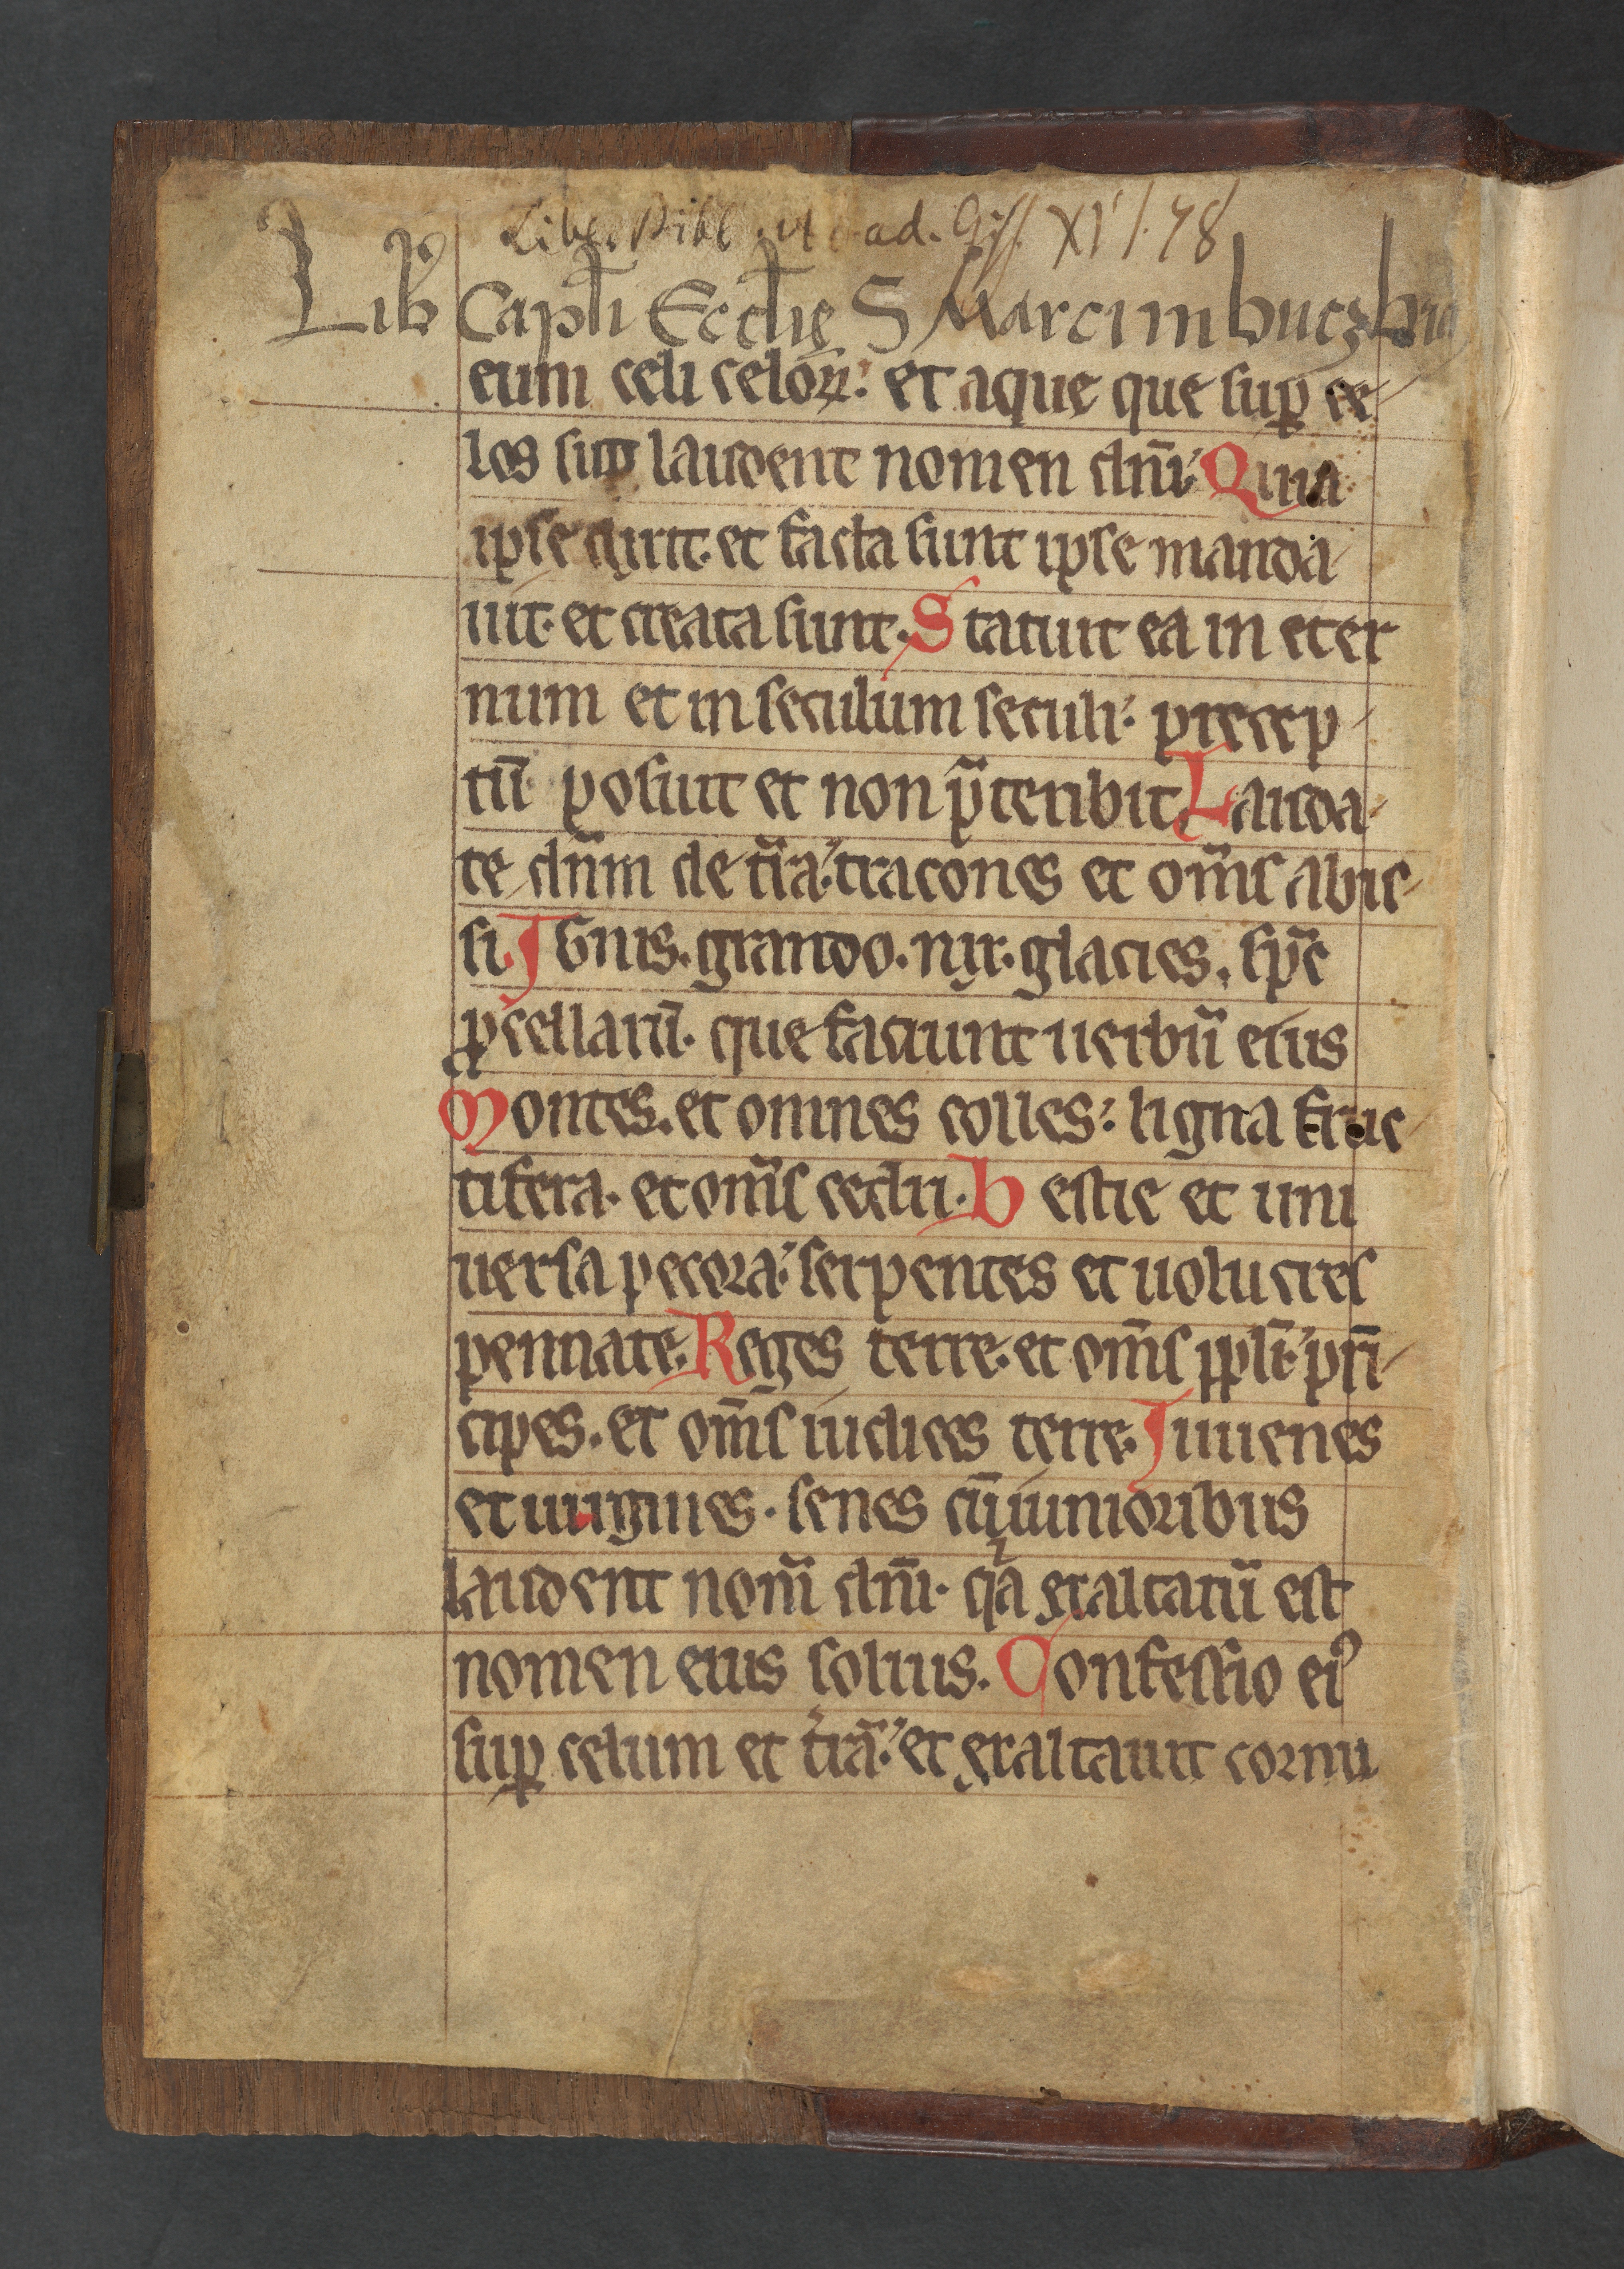 Liber Bibl. Acad. Giss. XI'/. 78
Lib᷒ Capl̄i Eccl̄ię S Marci in butzb
eum celi celoꝝ: et aque que sup̱ ce
los sūt laudent nomen dn̄i: Quia
ipse dixit. et facta sunt ipse manda
uit. et creata sunt. Statuit ea in eter
num et in seculum seculi: precep
tū posuit et non p̄teribit Lauda
te dn̄m de t̄ra: tracones et om̄s abis
si. Ignis. grando. nix. glacies. sp̄c
ꝓcellarū. que faciunt uerbū eius
Montes. et omnes colles: ligna fruc
tifera. et om̄s cedri. Bestie et uni
uersa pecora: serpentes et uolucres
pennate. Reges terre. et om̄s ppl̄i: prī
cipes. et om̄s iudices terre. Iuuenes
et uirgines. senes cū iunioribus
laudent nom̄ dn̄i. qa exaltatū est
nomen eius solius. Confessio ei᷒
sup̱ celum et t̄rā: et exaltauit cornu